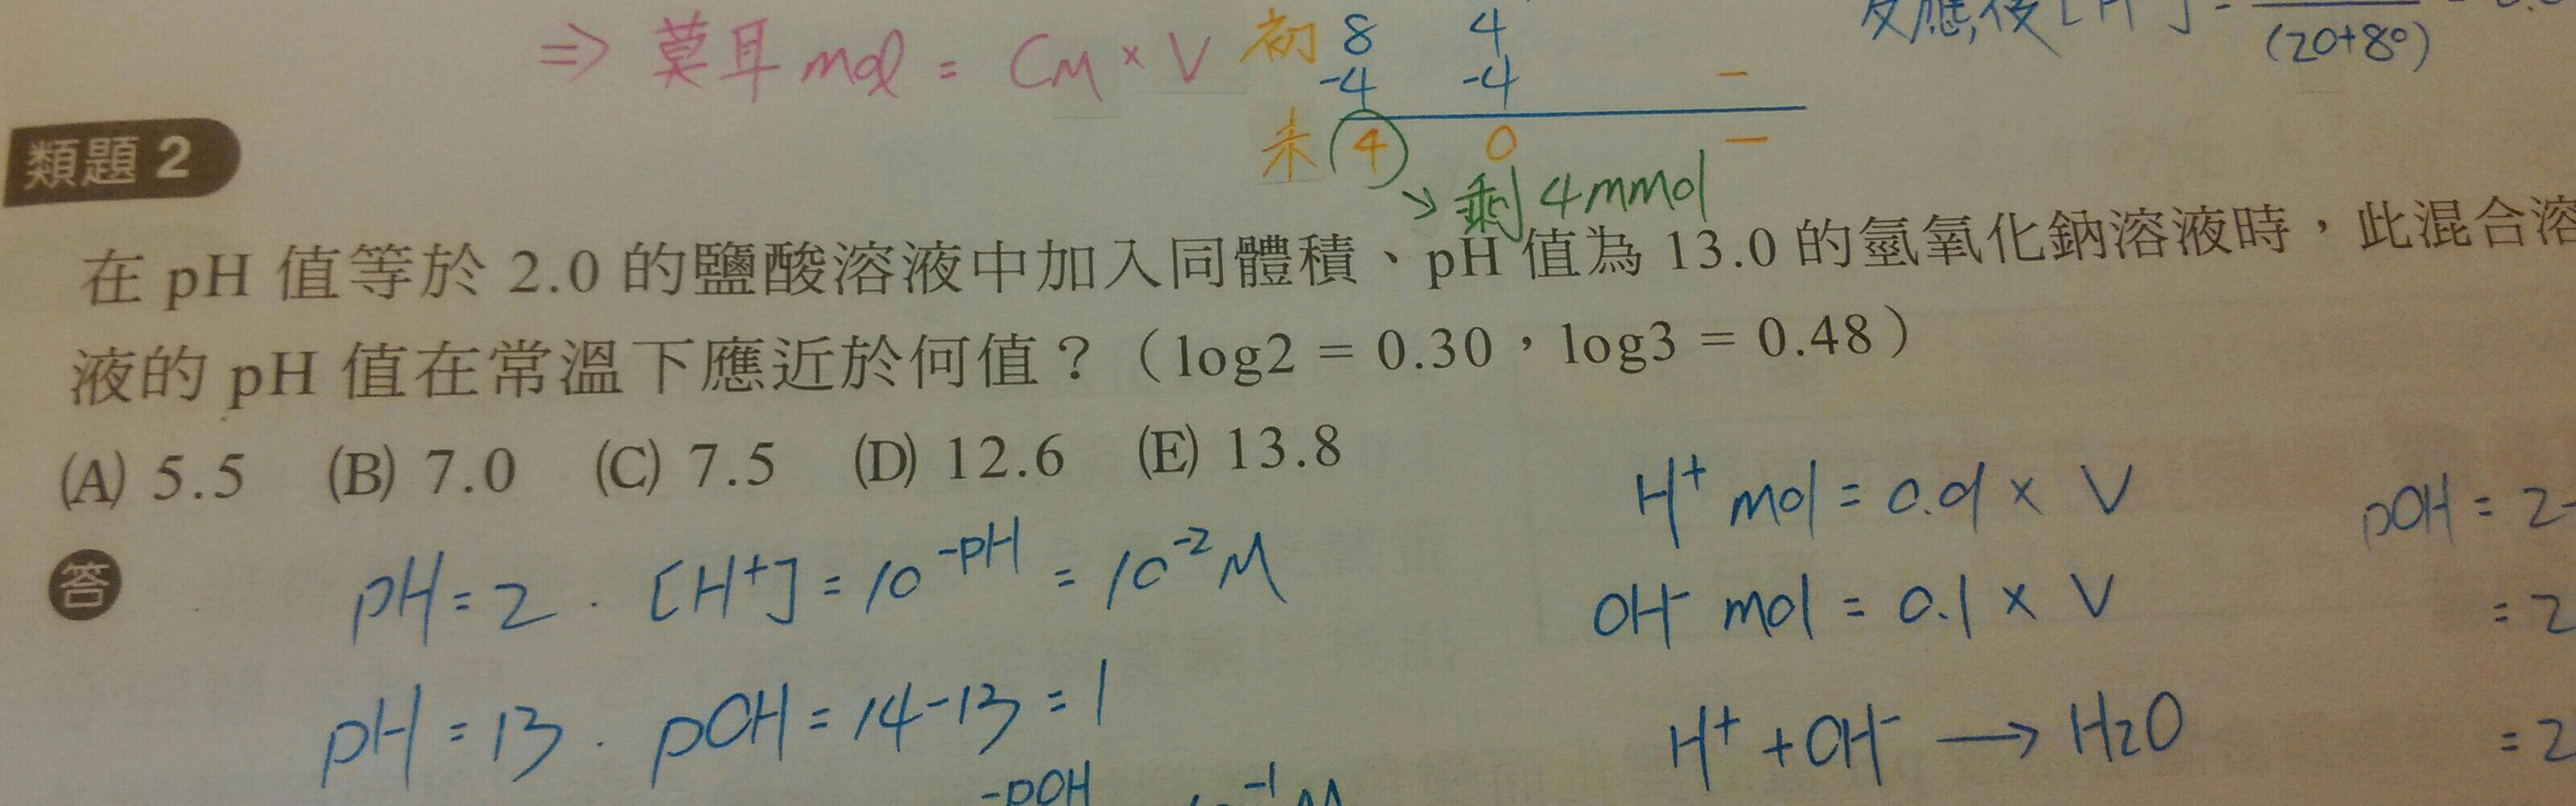 ⇒ 莫耳 mol = CM × V
初 8 4
-4 -4 -
末 4 0 -
→ 剩 4 mmol
反應後 [H⁺] =
(20+80)
類題 2
在 pH 值等於 2.0 的鹽酸溶液中加入同體積、pH 值為 13.0 的氫氧化鈉溶液時,此混合溶
液的 pH 值在常溫下應近於何值?(log2 = 0.30,log3 = 0.48)
(A) 5.5 (B) 7.0 (C) 7.5 (D) 12.6 (E) 13.8
答
pH = 2 . [H⁺] = 10^-pH = 10^-2 M
pH = 13 . pOH = 14-13 = 1
-pOH -1 M
H⁺ mol = 0.01 × V
OH⁻ mol = 0.1 × V
H⁺ + OH⁻ → H2O
pOH = 2-
= 2
= 2